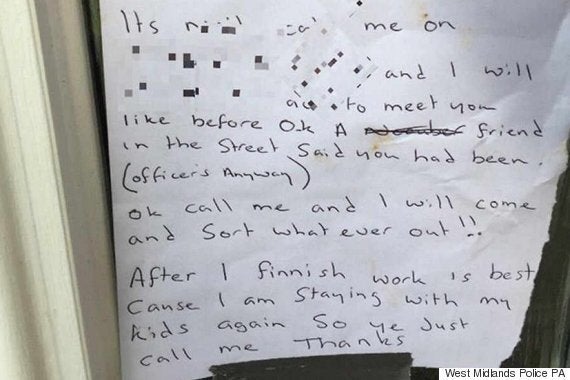 Its me on
and I will
to meet you
like before O.k A friend
in the Street Said you had been.
(officer's Anyway)
ok call me and I will come
and Sort what ever out!!
After I finnish work is best
Cause I am Staying with my
kids again So ye Just
call me Thanks
West Midlands Police PA